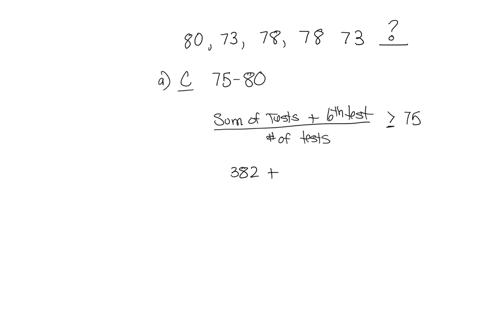 80, 73, 78, 78 73 ?
a) C 75-80
Sum of Tests + 6th test ≥ 75
# of tests
382 +